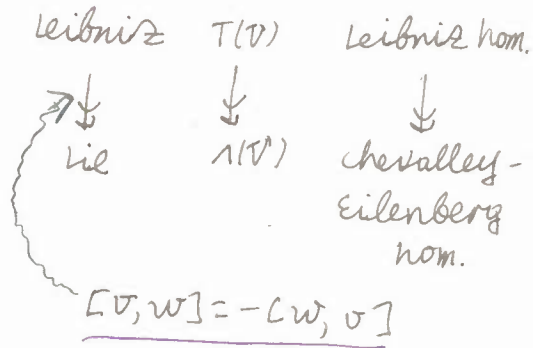 Leibniz T(V) Leibniz hom.
Lie Λ(V) Chevalley-
Eilenberg
hom.
[v, w] = -[w, v]